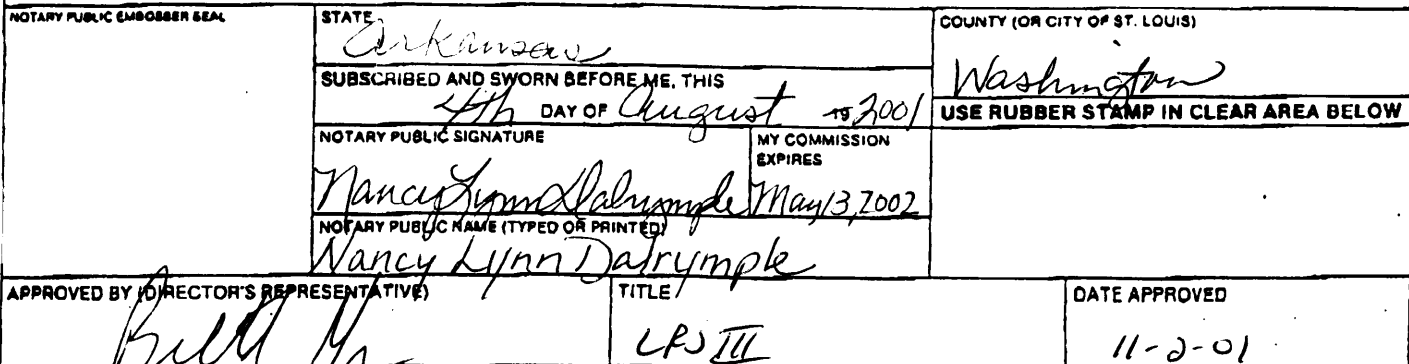 NOTARY PUBLIC EMBOSSER SEAL
STATE
Arkansas
COUNTY (OR CITY OF ST. LOUIS)
Washington
SUBSCRIBED AND SWORN BEFORE ME, THIS
4th DAY OF August 19 2001
USE RUBBER STAMP IN CLEAR AREA BELOW
NOTARY PUBLIC SIGNATURE
Nancy Lynn Dalrymple
MY COMMISSION
EXPIRES
May 13, 2002
NOTARY PUBLIC NAME (TYPED OR PRINTED)
Nancy Lynn Dalrymple
APPROVED BY (DIRECTOR'S REPRESENTATIVE)
TITLE
LPS III
DATE APPROVED
11-2-01